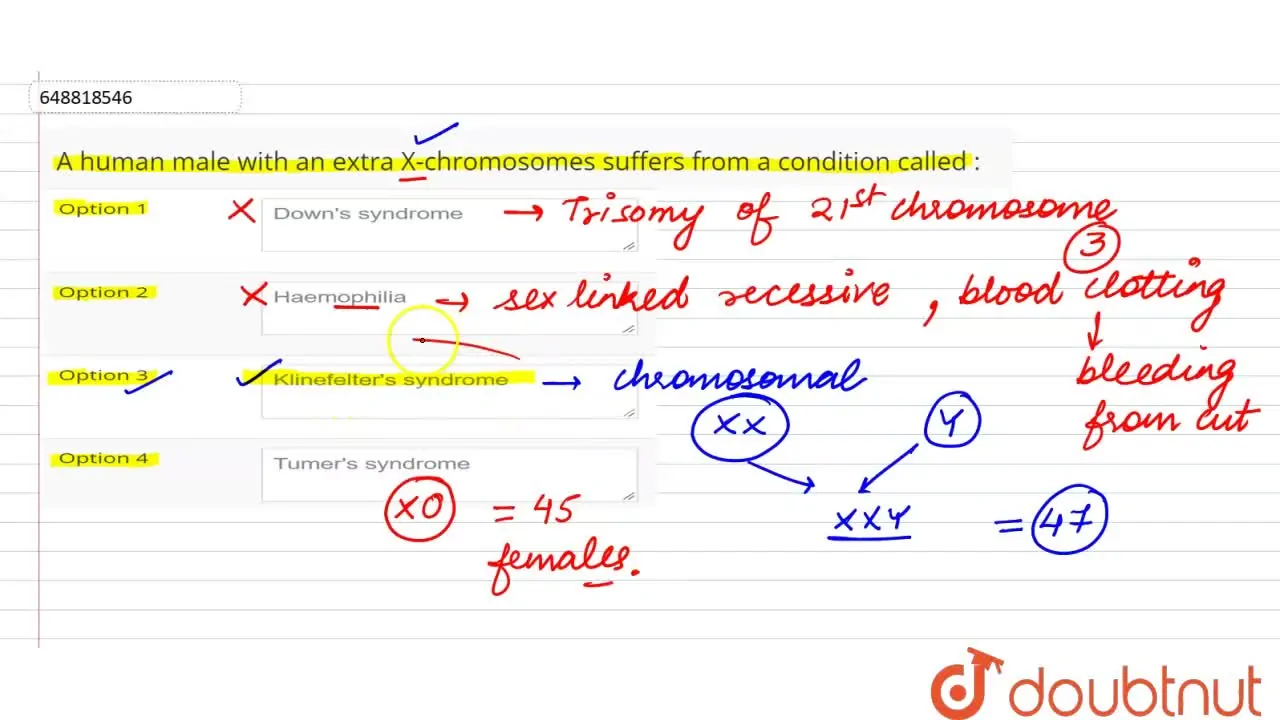 648818546
A human male with an extra X-chromosomes suffers from a condition called :
Option 1 × Down's syndrome → Trisomy of 21st chromosome
3
Option 2 × Haemophilia → sex linked recessive , blood clotting
↓
bleeding
from cut
Option 3 ✓ ✓ Klinefelter's syndrome → chromosomal
XX Y
Option 4 Tumer's syndrome
XO = 45
females.
XXY = 47
doubtnut